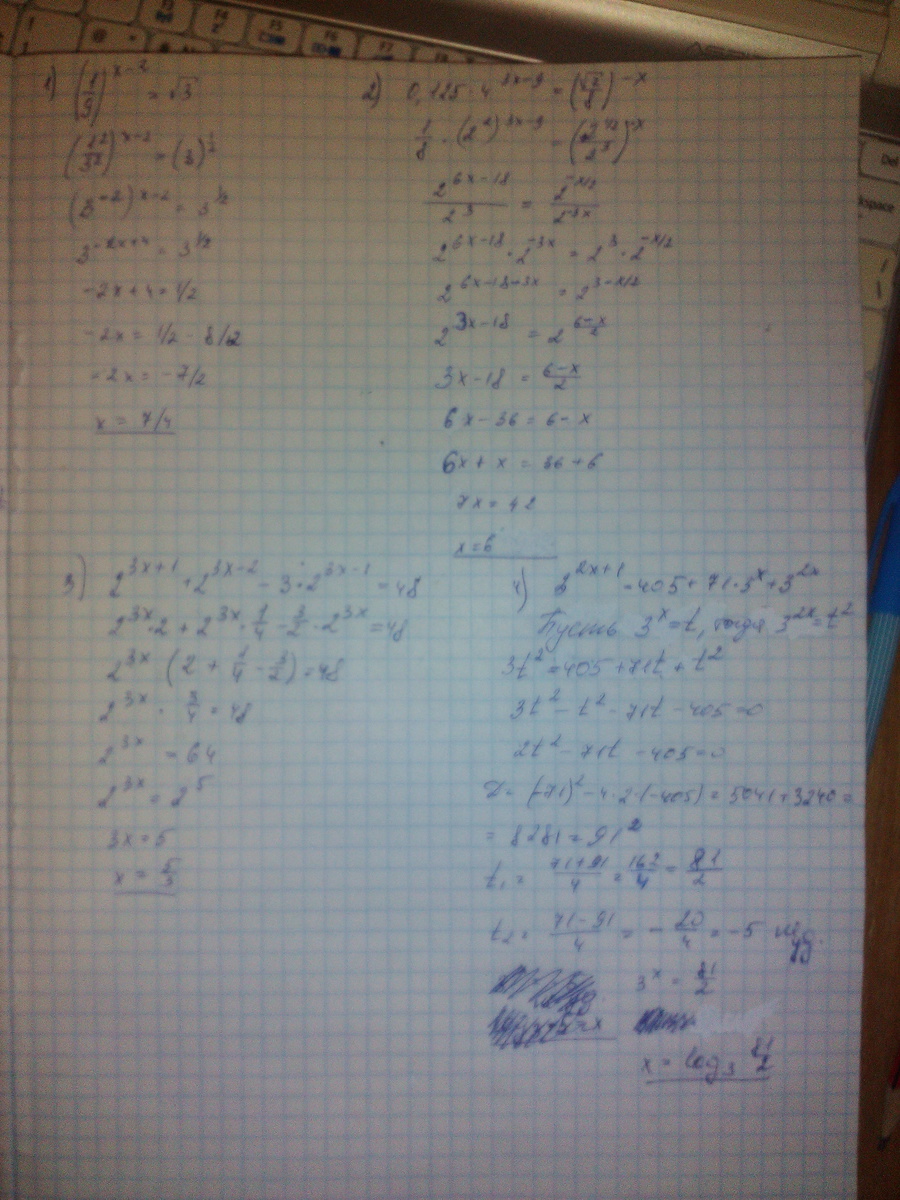 1) (1/9)^(x-2) = √3
(1²/3²)^(x-2) = (3)^(1/2)
(3^(-2))^(x-2) = 3^(1/2)
3^(-2x+4) = 3^(1/2)
-2x+4 = 1/2
-2x = 1/2 - 8/2
-2x = -7/2
x = 7/4
2) 0,125 · 4^(3x-9) = (√2/8)^(-x)
1/8 · (2²)^(3x-9) = (2^(1/2)/2³)^(-x)
2^(6x-18)/2³ = 2^(-x/2)/2^(-3x)
2^(6x-18) · 2^(-3x) = 2³ · 2^(-x/2)
2^(6x-18-3x) = 2^(3-x/2)
2^(3x-18) = 2^((6-x)/2)
3x-18 = (6-x)/2
6x-36 = 6-x
6x+x = 36+6
7x = 42
x=6
3) 2^(3x+1) + 2^(3x-2) - 3·2^(3x-1) = 48
2^(3x)·2 + 2^(3x)·1/4 - 3/2·2^(3x) = 48
2^(3x) (2 + 1/4 - 3/2) = 48
2^(3x) · 3/4 = 48
2^(3x) = 64
2^(3x) = 2^5
3x = 5
x = 5/3
4) 3^(2x+1) = 405 + 71·3^x + 3^(2x)
Пусть 3^x = t, тогда 3^(2x) = t²
3t² = 405 + 71t + t²
3t² - t² - 71t - 405 = 0
2t² - 71t - 405 = 0
D = (-71)² - 4·2·(-405) = 5041 + 3240 =
= 8281 = 91²
t₁ = (71+91)/4 = 162/4 = 81/2
t₂ = (71-91)/4 = -20/4 = -5
3^x = 81/2
x = log₃ 81/2